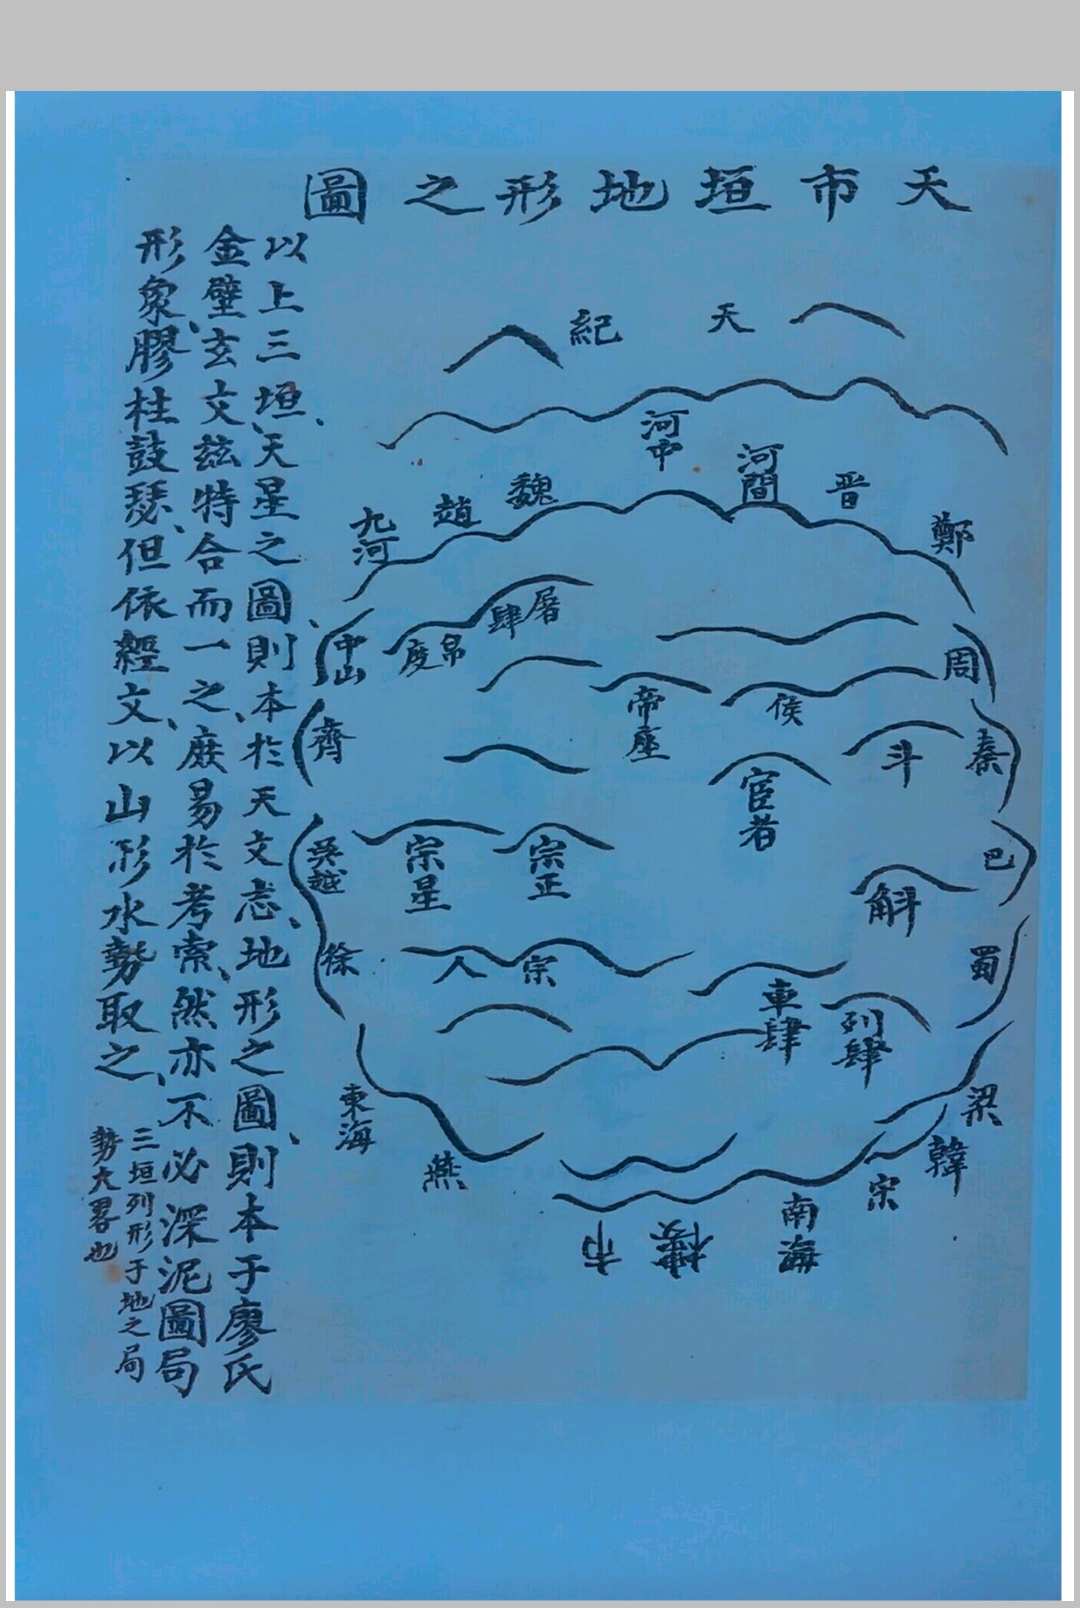 天市垣地形之圖
天紀
河中
河間
晋
鄭
魏
趙
九河
中山
屠肆
帛度
周
帝座
侯
齊
秦
斗
宦者
巴
吳越
宗星
宗正
斛
蜀
徐
宗人
車肆
列肆
梁
東海
燕
韓
宋
南海
市樓
以上三垣、天星之圖、則本於天文志、地形之圖、則本于廖氏
金壁玄文兹特合而一之、庶易於考索、然亦不必深泥圖局
形象、膠柱鼓瑟、但依經文、以山形水勢取之、
三垣列形于地之局
勢大畧也